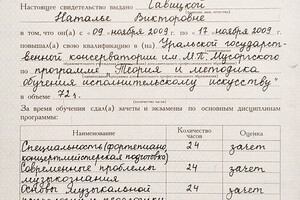 Настоящее свидетельство выдано Савицкой
Наталье Викторовне
в том, что он(а) с «09» ноября 2009 г. по «17» ноября 2009 г.
повышал(а) свою квалификацию в (на) Уральской государст-
венной консерватории им. М.П. Мусоргского
по программе „Теория и методика
обучения исполнительскому искусству"
в объеме 72 ч.
За время обучения сдал(а) зачеты и экзамены по основным дисциплинам
программы:
Наименование Количество часов Оценка
Специальность (фортепиано, 24 зачет
концертмейстерская подготовка)
Современные проблемы 24 зачет
музыкознания
Основы музыкальной 24 зачет